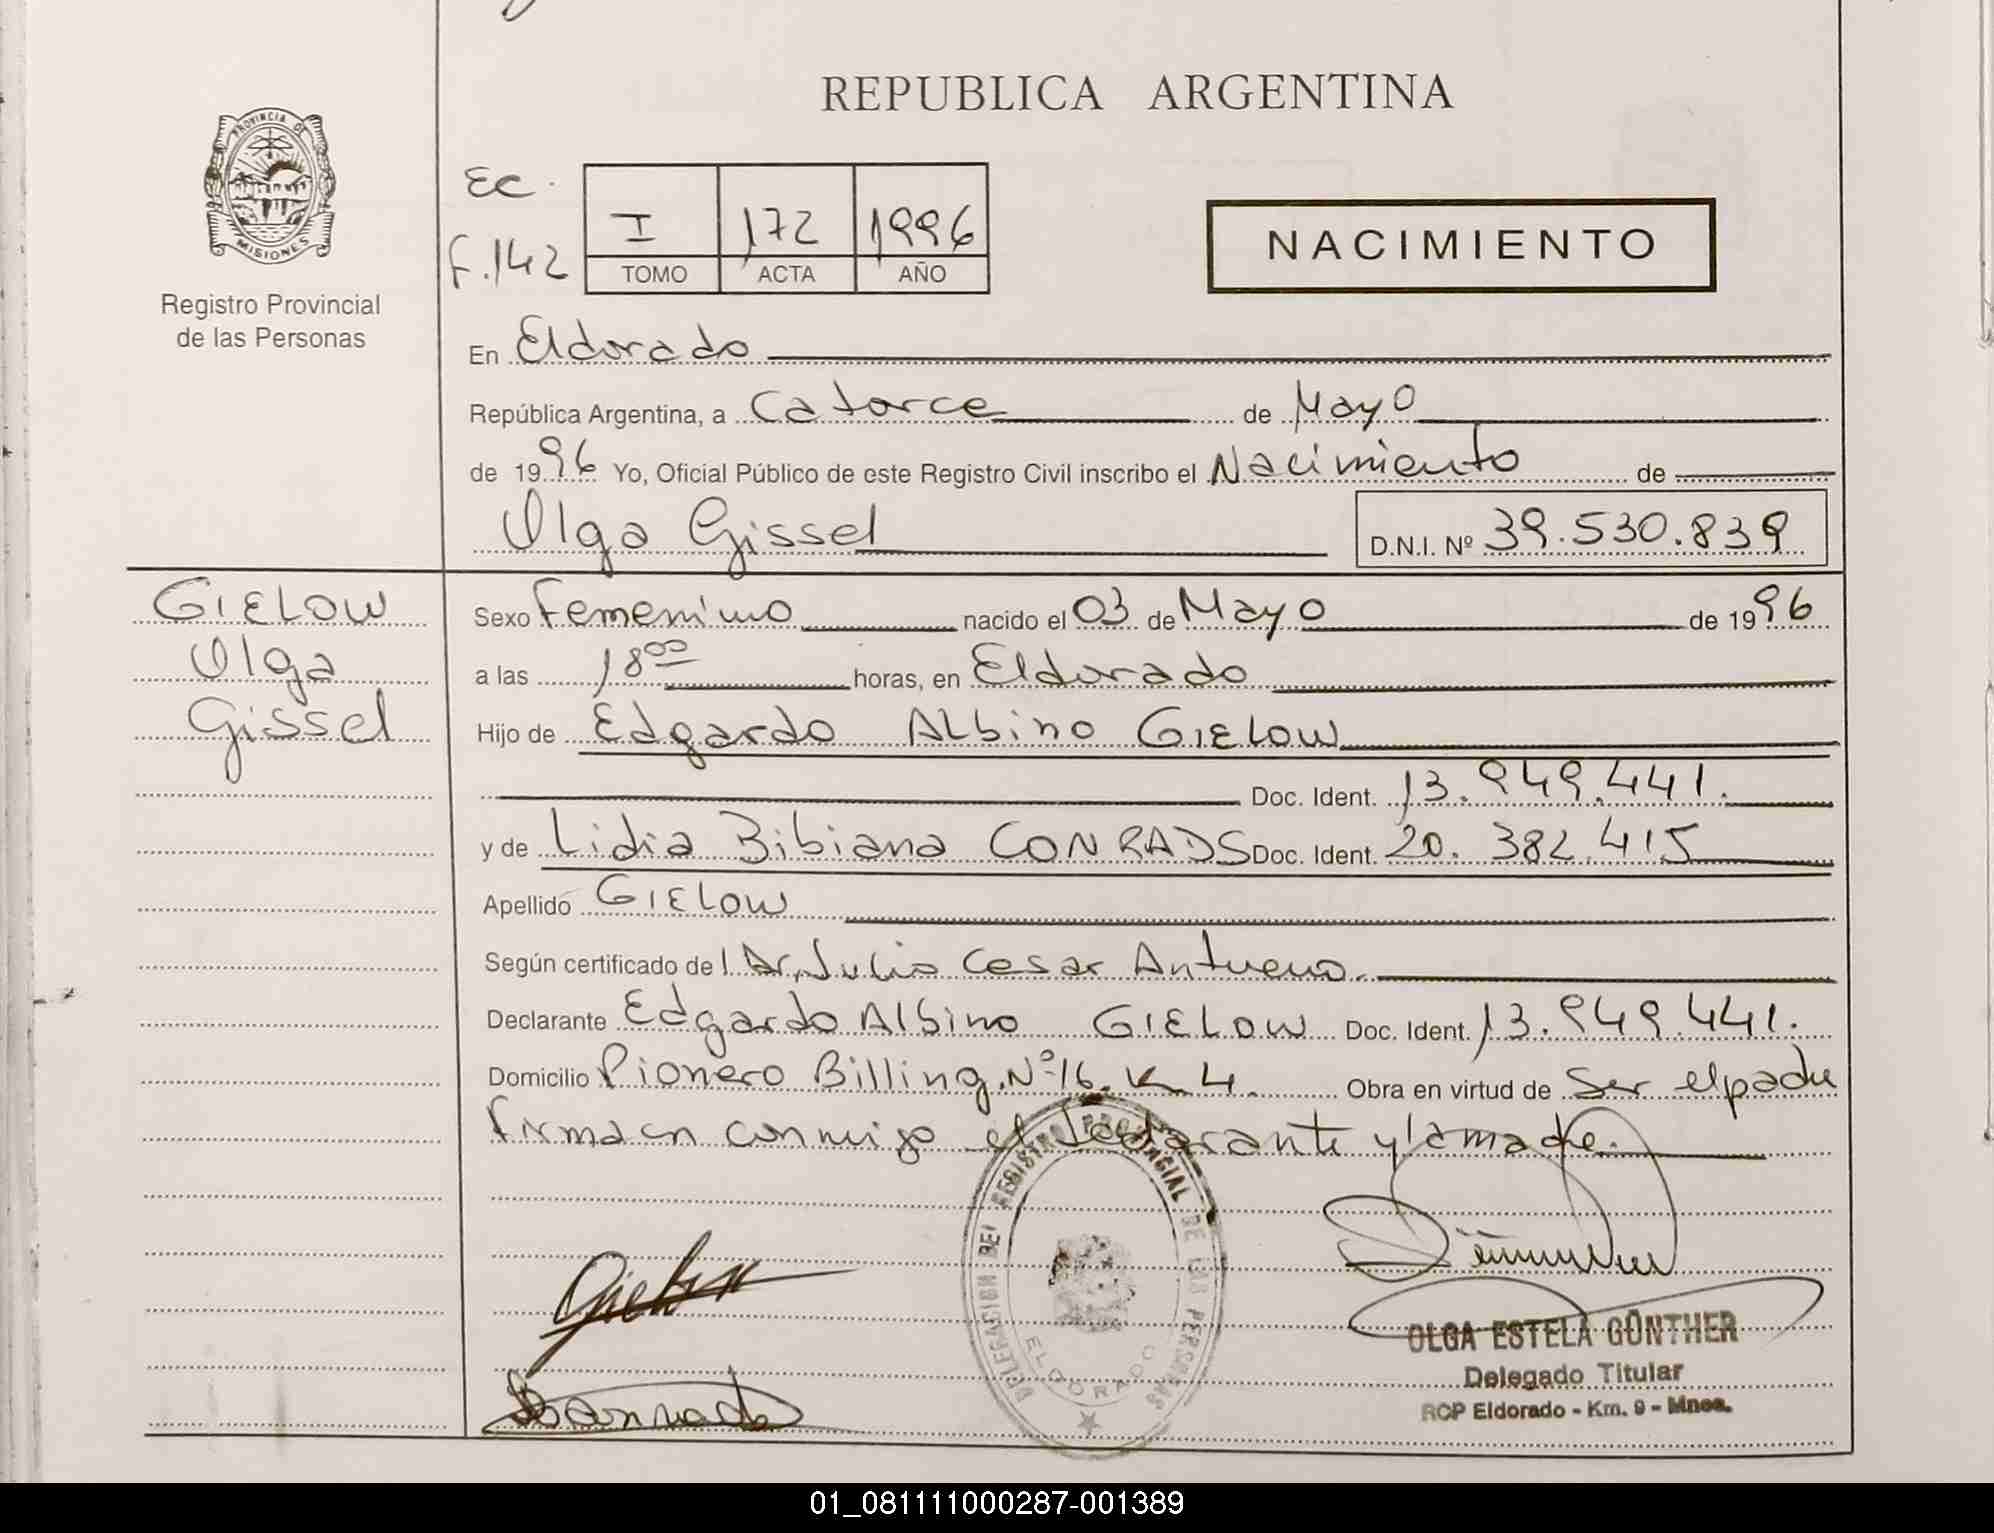 REPUBLICA ARGENTINA
PROVINCIA DE
MISIONES
Registro Provincial
de las Personas
EC.
F.142
I 172 1996
TOMO ACTA AÑO
NACIMIENTO
En Eldorado
República Argentina, a Catorce de Mayo
de 1996 Yo, Oficial Público de este Registro Civil inscribo el Nacimiento de
Olga Gissel D.N.I. Nº 39.530.839
GIELOW
Olga
Gissel
Sexo Femenino nacido el 03 de Mayo de 1996
a las 18 00 horas, en Eldorado
Hijo de Edgardo Albino GIELOW
Doc. Ident. 13.949.441.
y de Lidia Bibiana CONRADS Doc. Ident. 20.382.415
Apellido GIELOW
Según certificado del Dr. Julio Cesar Antueno.
Declarante Edgardo Albino GIELOW Doc. Ident. 13.949.441.
Domicilio Pionero Billing. Nº 16. K. 4. Obra en virtud de Ser el padre
Firman conmigo el declarante y la madre.
DELEGACION DEL REGISTRO PROVINCIAL DE LAS PERSONAS
ELDORADO
Gielow
OLGA ESTELA GÜNTHER
Delegado Titular
RCP Eldorado - Km. 9 - Mnes.
01_081111000287-001389